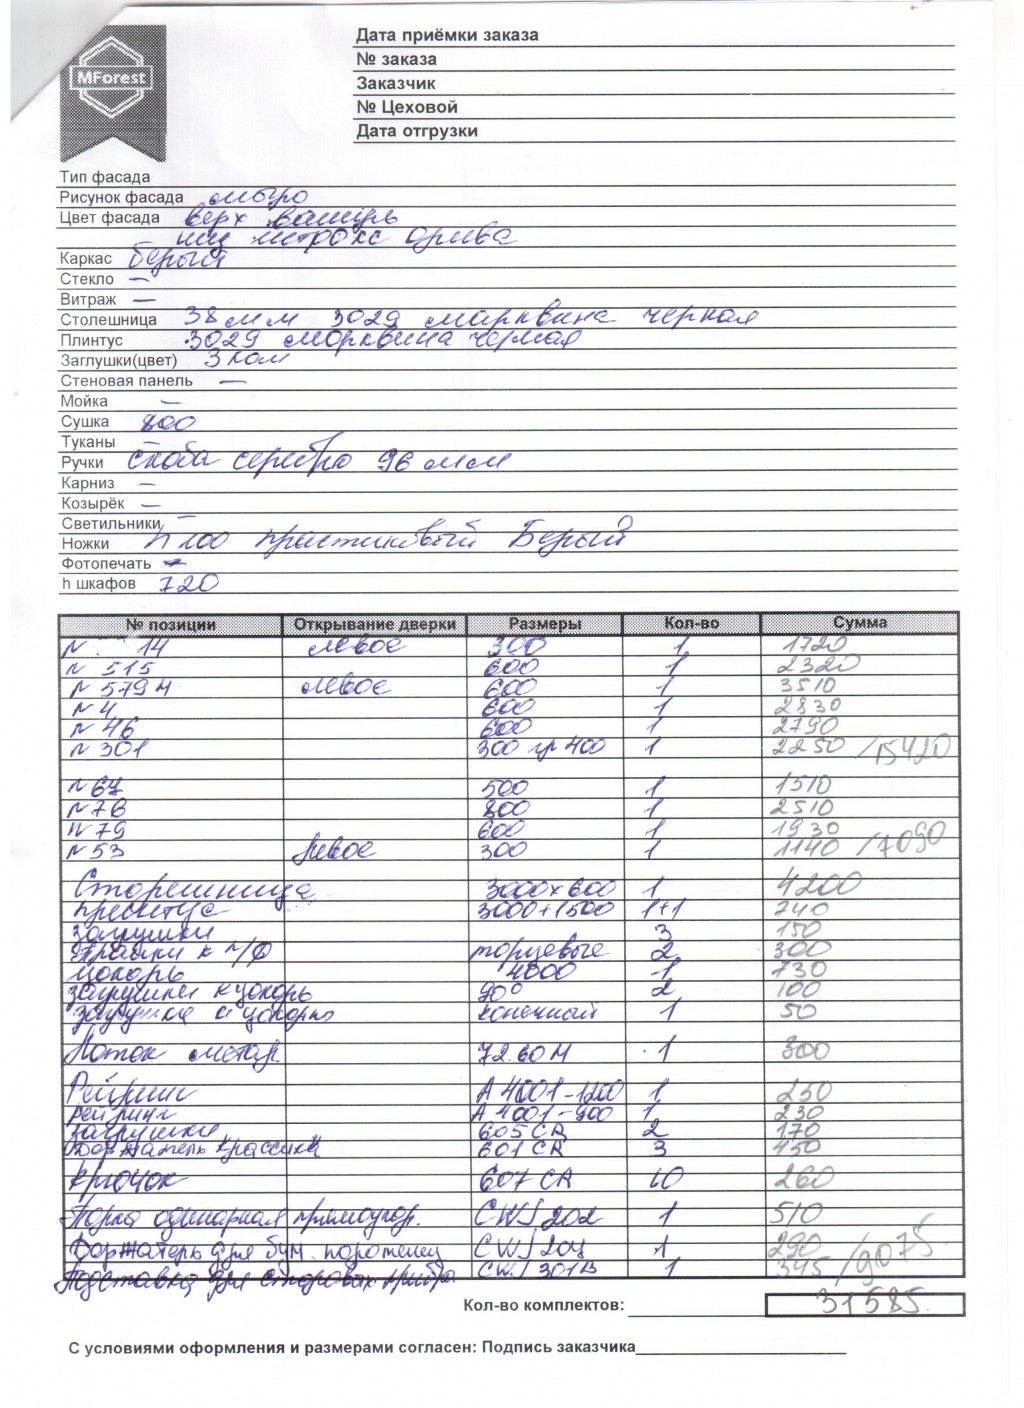 MForest
Дата приёмки заказа
№ заказа
Заказчик
№ Цеховой
Дата отгрузки
Тип фасада
Рисунок фасада мыло
Цвет фасада верх ваниль
низ метрокс олива
Каркас белый
Стекло —
Витраж —
Столешница 38 мм 3029 марквина черная
Плинтус 3029 марквина черная
Заглушки(цвет) 3 ком
Стеновая панель —
Мойка —
Сушка 800
Туканы —
Ручки скоба серебро 96 мм
Карниз —
Козырёк —
Светильники —
Ножки h 100 пластиковый Белый
Фотопечать —
h шкафов 720
№ позиции Открывание дверки Размеры Кол-во Сумма
N 14 левое 300 1 1720
N 515 600 1 2320
N 579 М левое 600 1 3510
N 4 600 1 2830
N 46 600 1 2790
N 301 300 гл 400 1 2250 /15420
N 67 500 1 1510
N 76 800 1 2510
N 79 600 1 1930
N 53 левое 300 1 1140 /7090
Столешница 3000×600 1 4200
плинтус 3000+1500 1+1 740
заглушки 3 150
планки к п/ф торцевые 2 300
цоколь 4000 1 730
заглушки к цоколь 90° 2 100
заглушка к цоколю конечный 1 50
Лоток метал. 72.60 М 1 300
Рейлинг А 4001-1200 1 250
рейлинг А 4001-900 1 230
заглушки 605 CR 2 170
Держатель классика 601 CR 3 450
крючок 607 CR 10 260
Полка одинарная прямоугол. CWJ 202 1 510
Держатель для бум. полотенец CWJ 204 1 290
Подставка для столовых приб. CWJ 301B 1 345 /9075
Кол-во комплектов: 31585
С условиями оформления и размерами согласен: Подпись заказчика